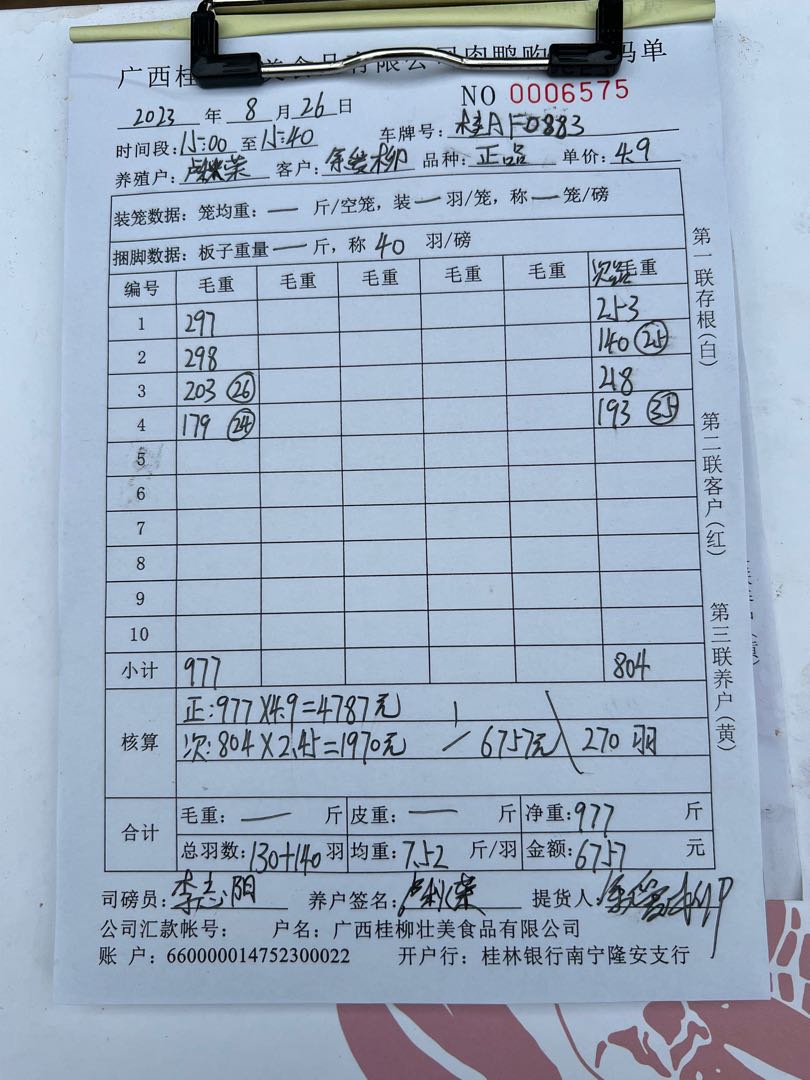 广西桂 美食品有限公司肉鸭购 码单
2023 年 8 月 26 日 NO 0006575
时间段:15:00 至 15:40 车牌号: 桂AF0883
养殖户: 客户: 品种: 正品 单价: 4.9
装笼数据: 笼均重: — 斤/空笼, 装 — 羽/笼, 称 — 笼/磅
捆脚数据: 板子重量 — 斤, 称 40 羽/磅
编号 毛重 毛重 毛重 毛重 毛重 次品毛重
1 297 253
2 298 140 25
3 203 26 218
4 179 24 193 35
5
6
7
8
9
10
小计 977 804
核算 正:977×4.9=4787元
次:804×2.45=1970元 / 6757元 270羽
合计 毛重: — 斤 皮重: — 斤 净重: 977 斤
总羽数: 130+140 羽 均重: 7.52 斤/羽 金额: 6757 元
司磅员: 李志阳 养户签名: 提货人:
公司汇款帐号: 户名: 广西桂柳壮美食品有限公司
账 户: 660000014752300022 开户行: 桂林银行南宁隆安支行
第一联存根(白)
第二联客户(红)
第三联养户(黄)